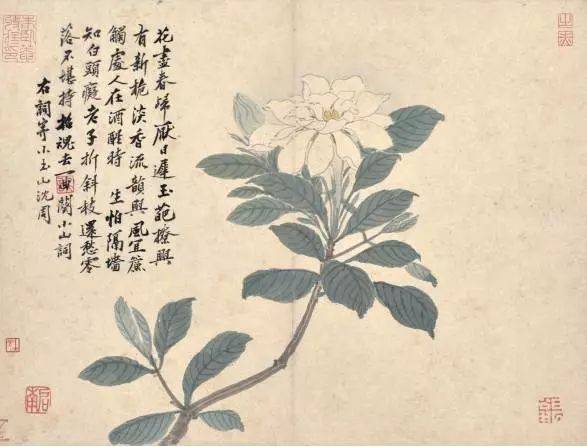 花盡春歸厭日遲玉葩撩興
有新梔淡香流韻與風宜簾
觸處人在酒醒時 生怕隔墻
知白頭癡老子折斜枝還愁零
落不堪持招魂去一曲闋小山詞
右詞寄小重山沈周